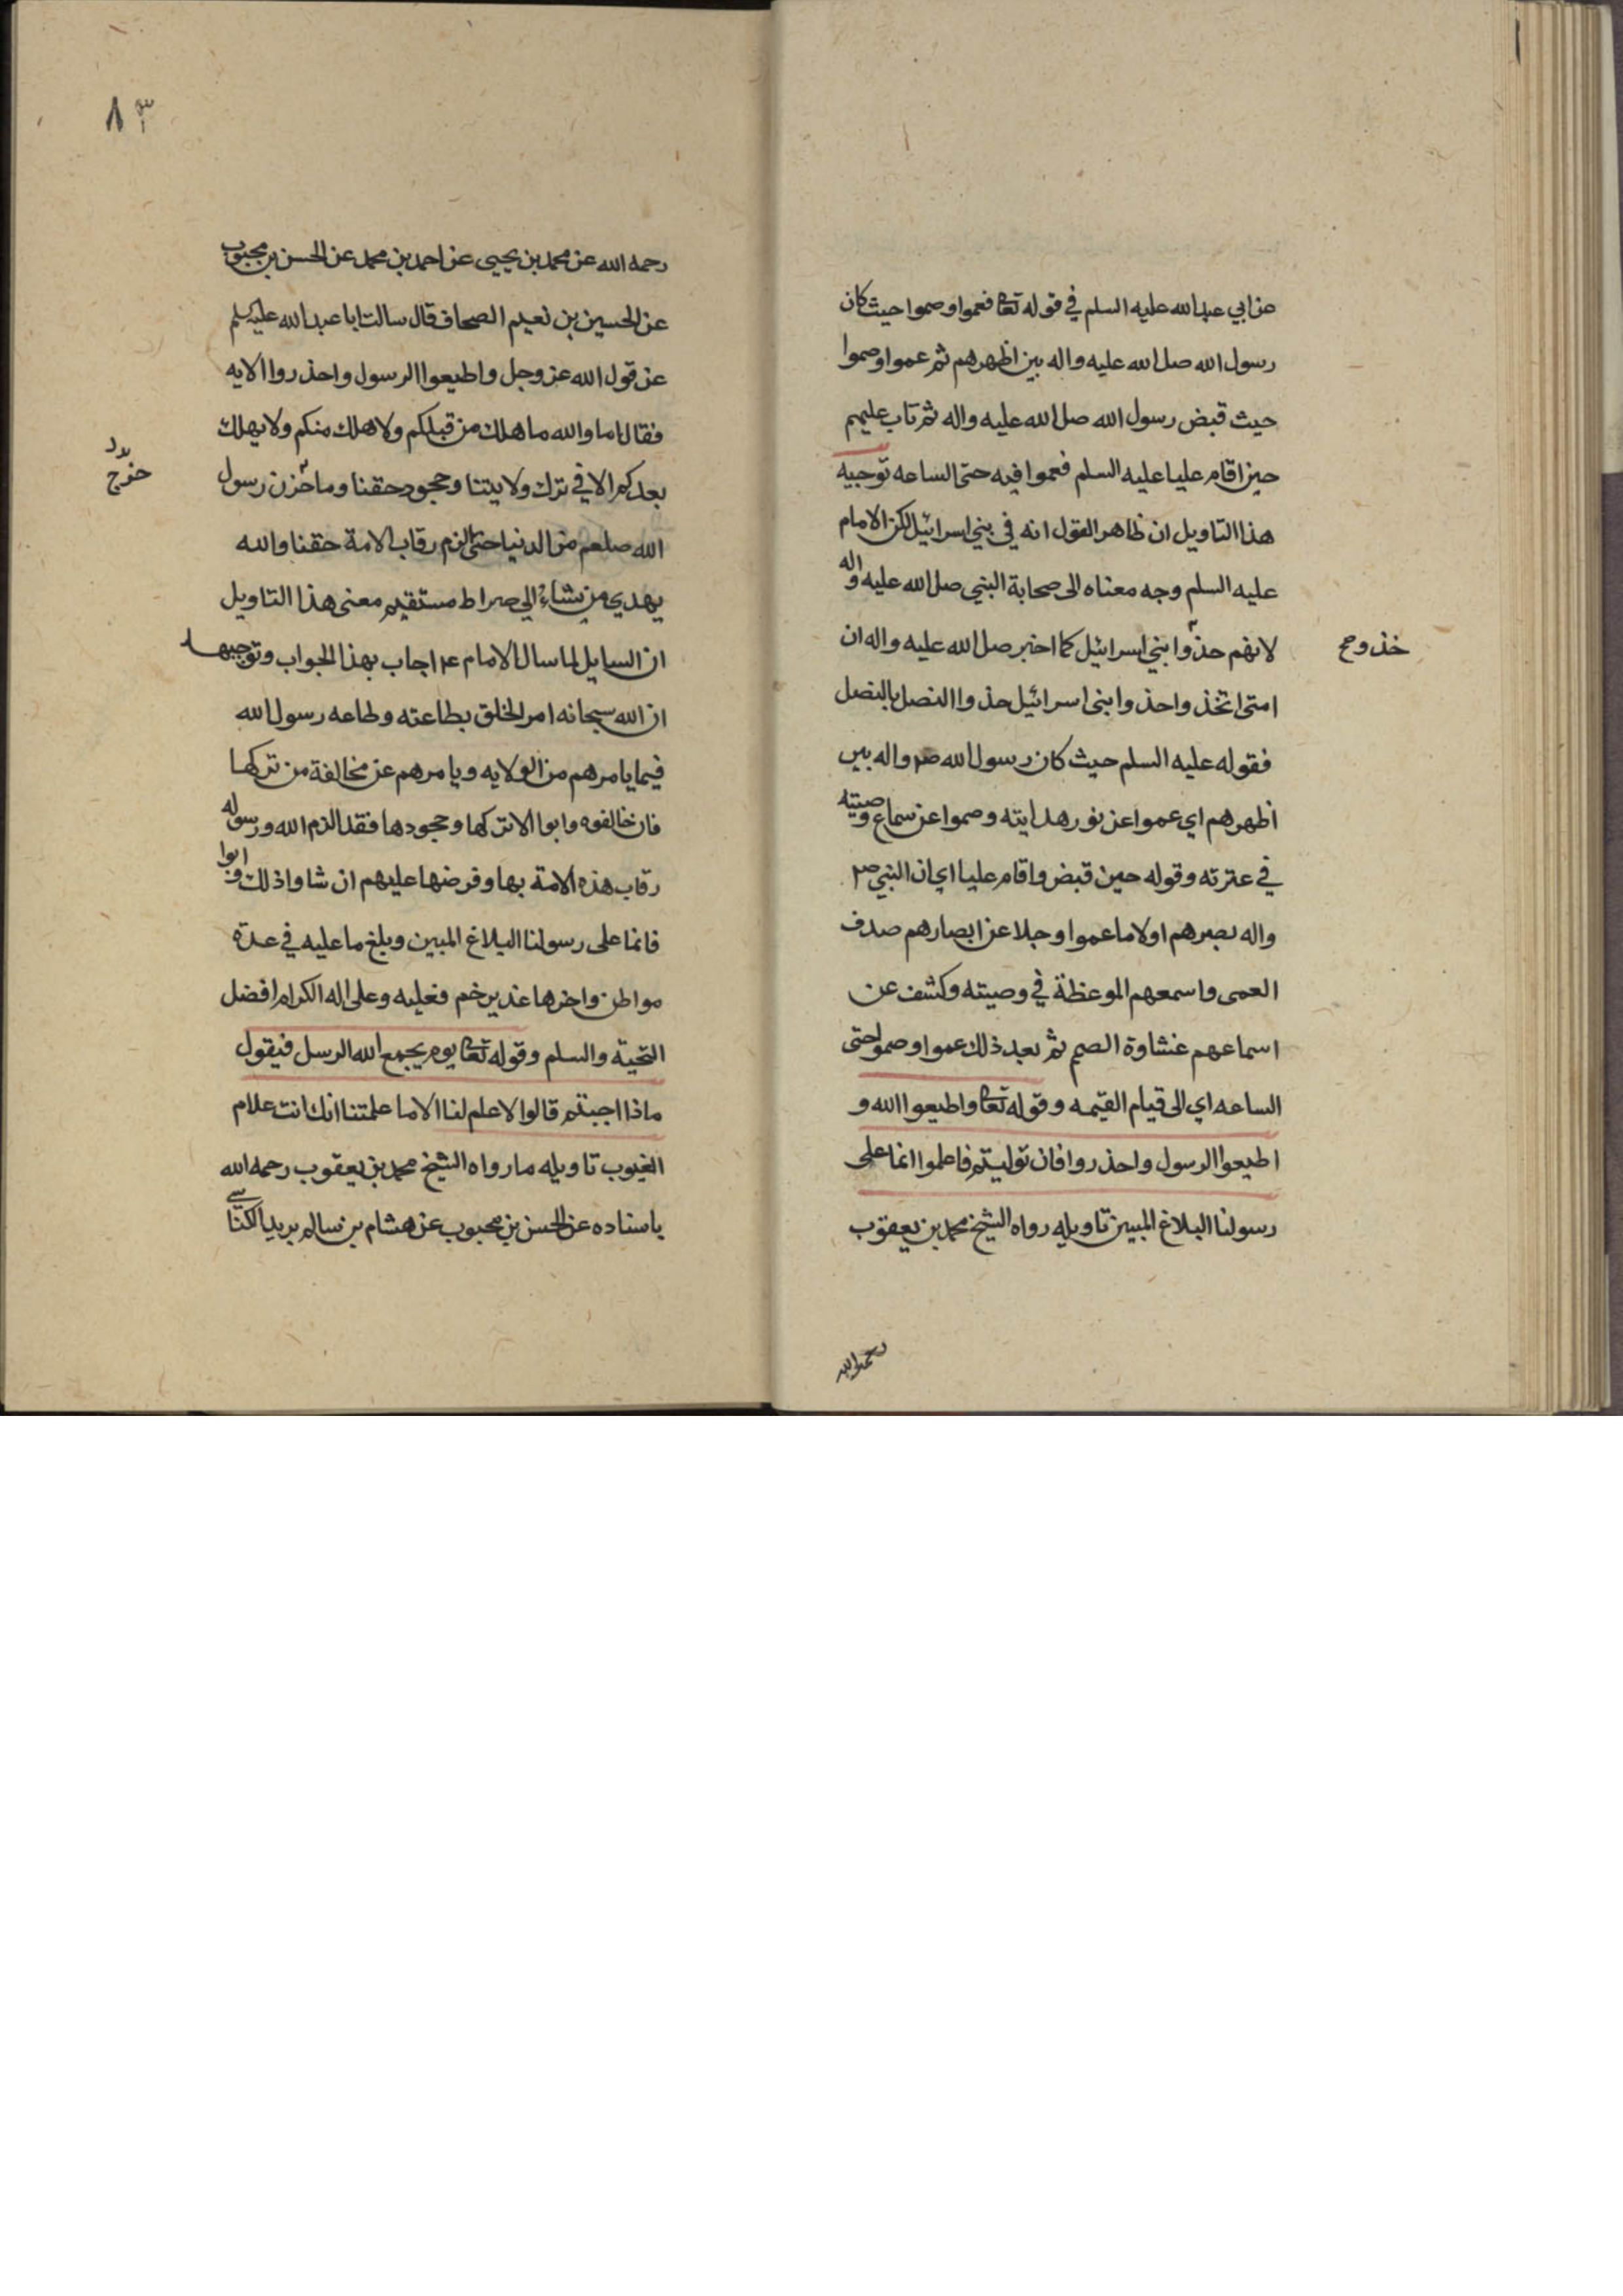 عن ابي عبدالله عليه السلم في قوله تعا فعموا وصموا حيث كان
رسول الله صل الله عليه واله بين اظهرهم ثم عموا وصموا
حيث قبض رسول الله صل الله عليه واله ثم تاب عليهم
حين اقام عليا عليه السلم فعموا فيه حتى الساعه توجيه
هذا التاويل ان ظاهر القول انه في بني اسرائيل لكن الامام
عليه السلم وجه معناه الى صحابة النبي صل الله عليه واله
لانهم حذوا بني اسرائيل كما اخبر صل الله عليه واله ان
خذوح
امتى اتخذ واحذوا بنى اسرائيل حذوا النصل بالنصل
فقوله عليه السلم حيث كان رسول الله صم واله بين
اظهرهم اي عموا عن نور هدايته وصموا عن سماع وصيته
في عترته وقوله حين قبض واقام عليا اي ان النبي صم
واله بصرهم اولا ما عموا وجلا عن ابصارهم صدف
العمى واسمعهم الموعظة في وصيته وكشف عن
اسماعهم غشاوة الصم ثم بعد ذلك عموا وصموا حتى
الساعه اي الى قيام القيمه وقوله تعا واطيعوا الله و
اطيعوا الرسول واحذروا فان توليتم فاعلموا انما على
رسولنا البلاغ المبين تاويله رواه الشيخ محمد بن يعقوب
رحمه الله
٨٣
رحمه الله عن محمد بن يحيى عن احمد بن محمد عن الحسن بن محبوب
عن الحسين بن نعيم الصحاف قال سالت ابا عبدالله عليه سلم
عن قول الله عز وجل واطيعوا الرسول واحذروا الايه
فقال اما والله ما هلك من قبلكم ولا هلك منكم ولا يهلك
بعدكم الا في ترك ولايتنا وجحود حقنا وما خرن رسول
خرج
الله صلعم من الدنيا حتى الزم رقاب الامة حقنا والله
يهدي من يشاء الي صراط مستقيم معنى هذا التاويل
ان السايل لما سال الامام عم اجاب بهذا الجواب وتوجيهه
ان الله سبحانه امر الخلق بطاعته وطاعه رسول الله
فيما يامرهم من الولايه ويامرهم عن مخالفة من تركها
فان خالفوه وابوا الا تركها وجحودها فقد الزم الله ورسوله
رقاب هذه الامة بها وفرضها عليهم ان شاوا ذلك وابوا
فانما على رسولنا البلاغ المبين وبلغ ما عليه في عدة
مواطن واخرها غدير خم فعليه وعلى اله الكرام افضل
التحية والسلم وقوله تعا يوم يجمع الله الرسل فيقول
ماذا اجبتم قالوا لا علم لنا الا ما علمتنا انك انت علام
الغيوب تاويله ما رواه الشيخ محمد بن يعقوب رحمه الله
باسناده عن الحسن بن محبوب عن هشام بن سالم بريد الكناسي